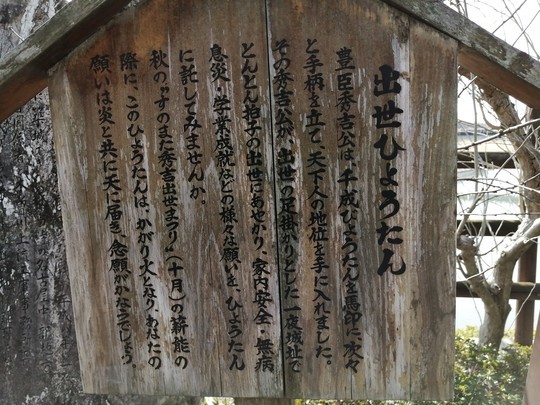 出世ひょうたん
豊臣秀吉公は、千成ひょうたんを馬印に次々
と手柄を立て、天下人の地位を手に入れました。
その秀吉公が、出世の足掛かりとした一夜城址で
とんとん拍子の出世にあやかり、家内安全・無病
息災・学業成就などの様々な願いを、ひょうたん
に託してみませんか。
秋の〝すのまた秀吉出世まつり〟(十月)の薪能の
際に、このひょうたんは、かがり火となり、あなたの
願いは炎と共に天に届き、念願がかなうでしょう。